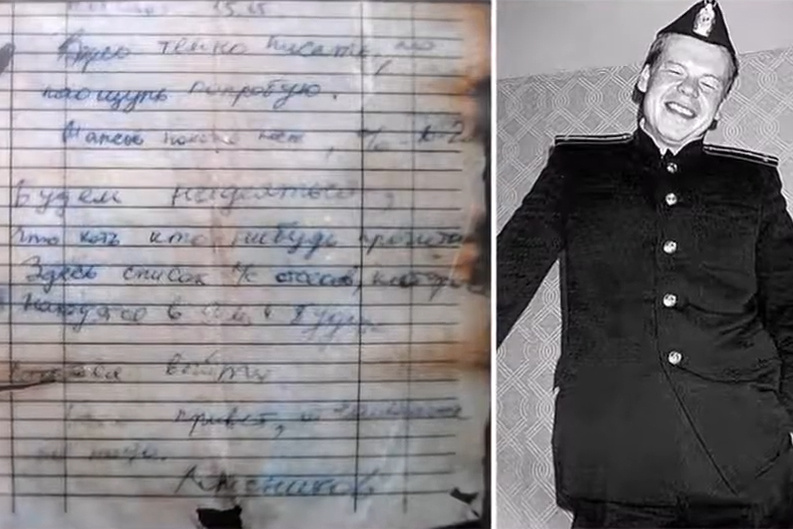 темно писать, но
на ощупь попробую.
Шансов похоже нет, %
Будем надеяться,
что хоть кто-нибудь прочита
Здесь список л/с отсеков, которы
находятся в и будут
выйти
привет, отчаиваться
не надо.
Колесников